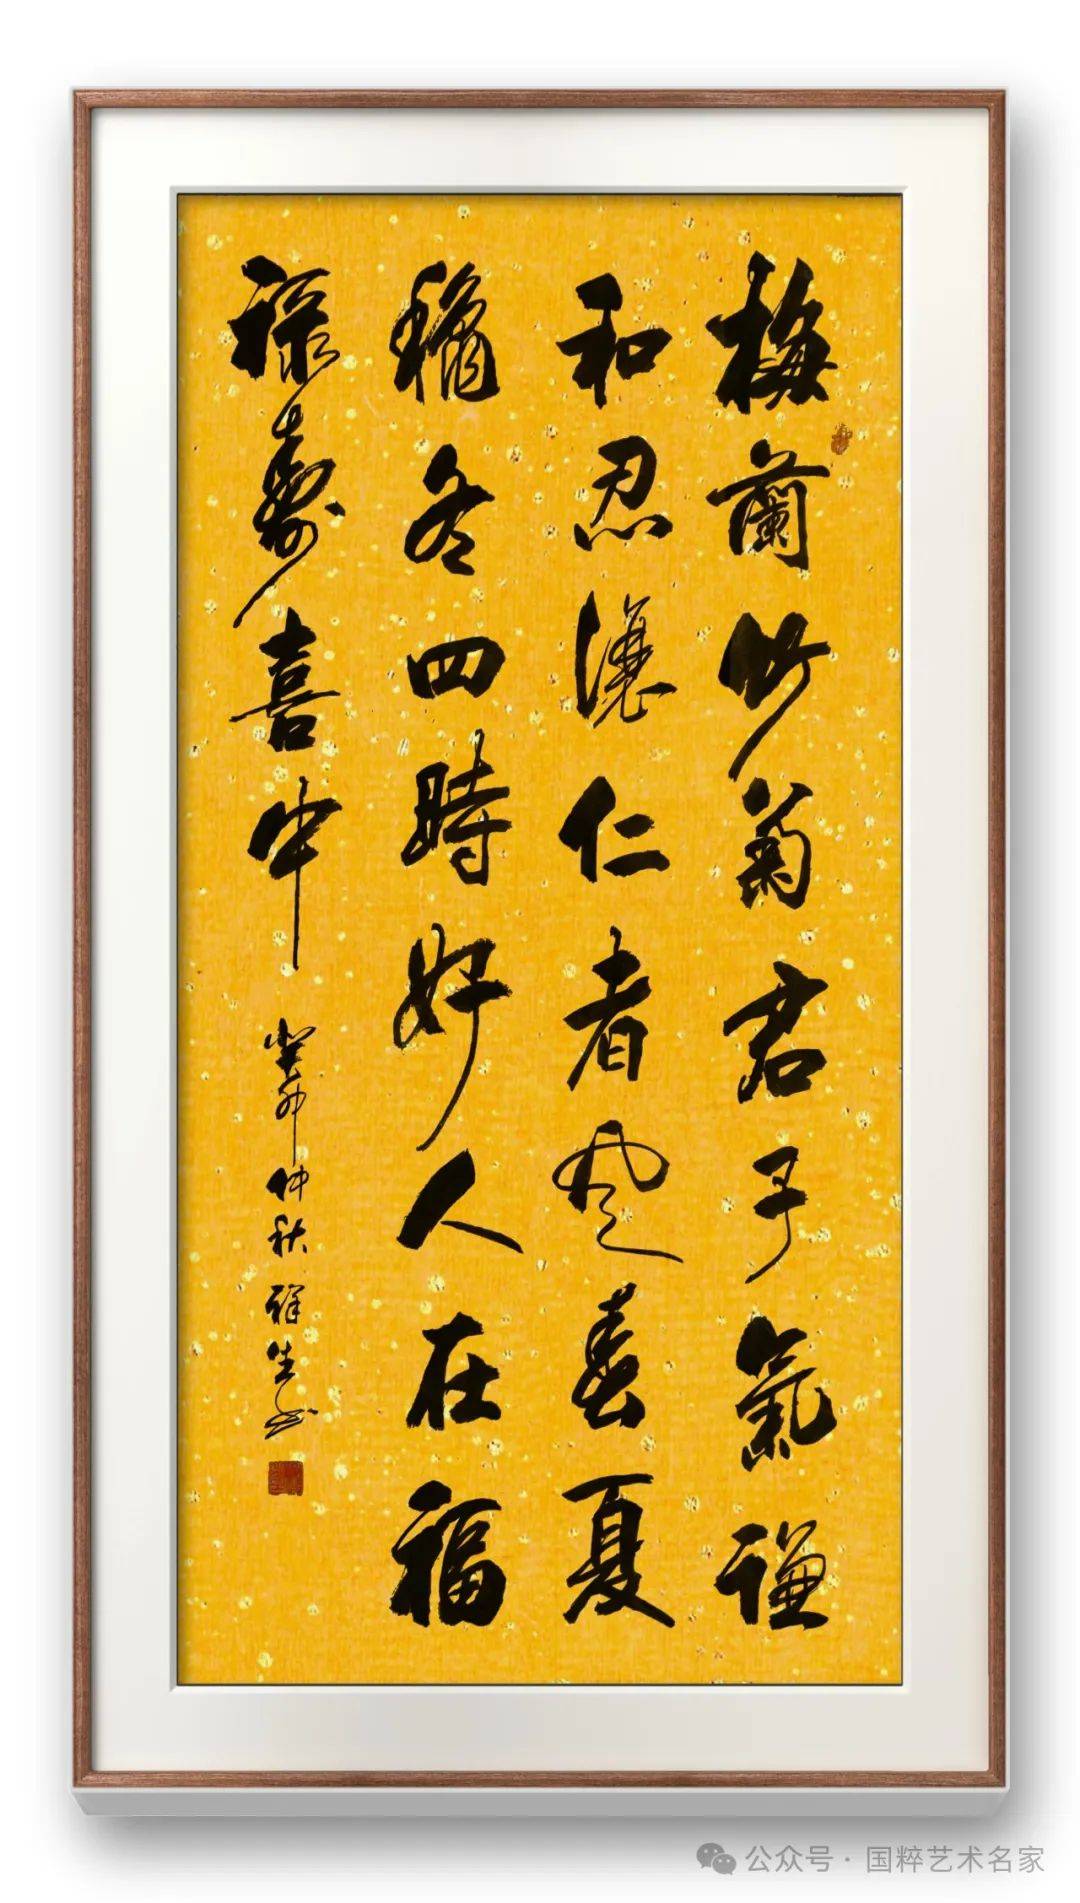 梅蘭竹菊君子氣謙
和忍讓仁者風春夏
龝冬四時好人在福
祿壽喜中
癸卯仲秋祥生書
公众号·国粹艺术名家